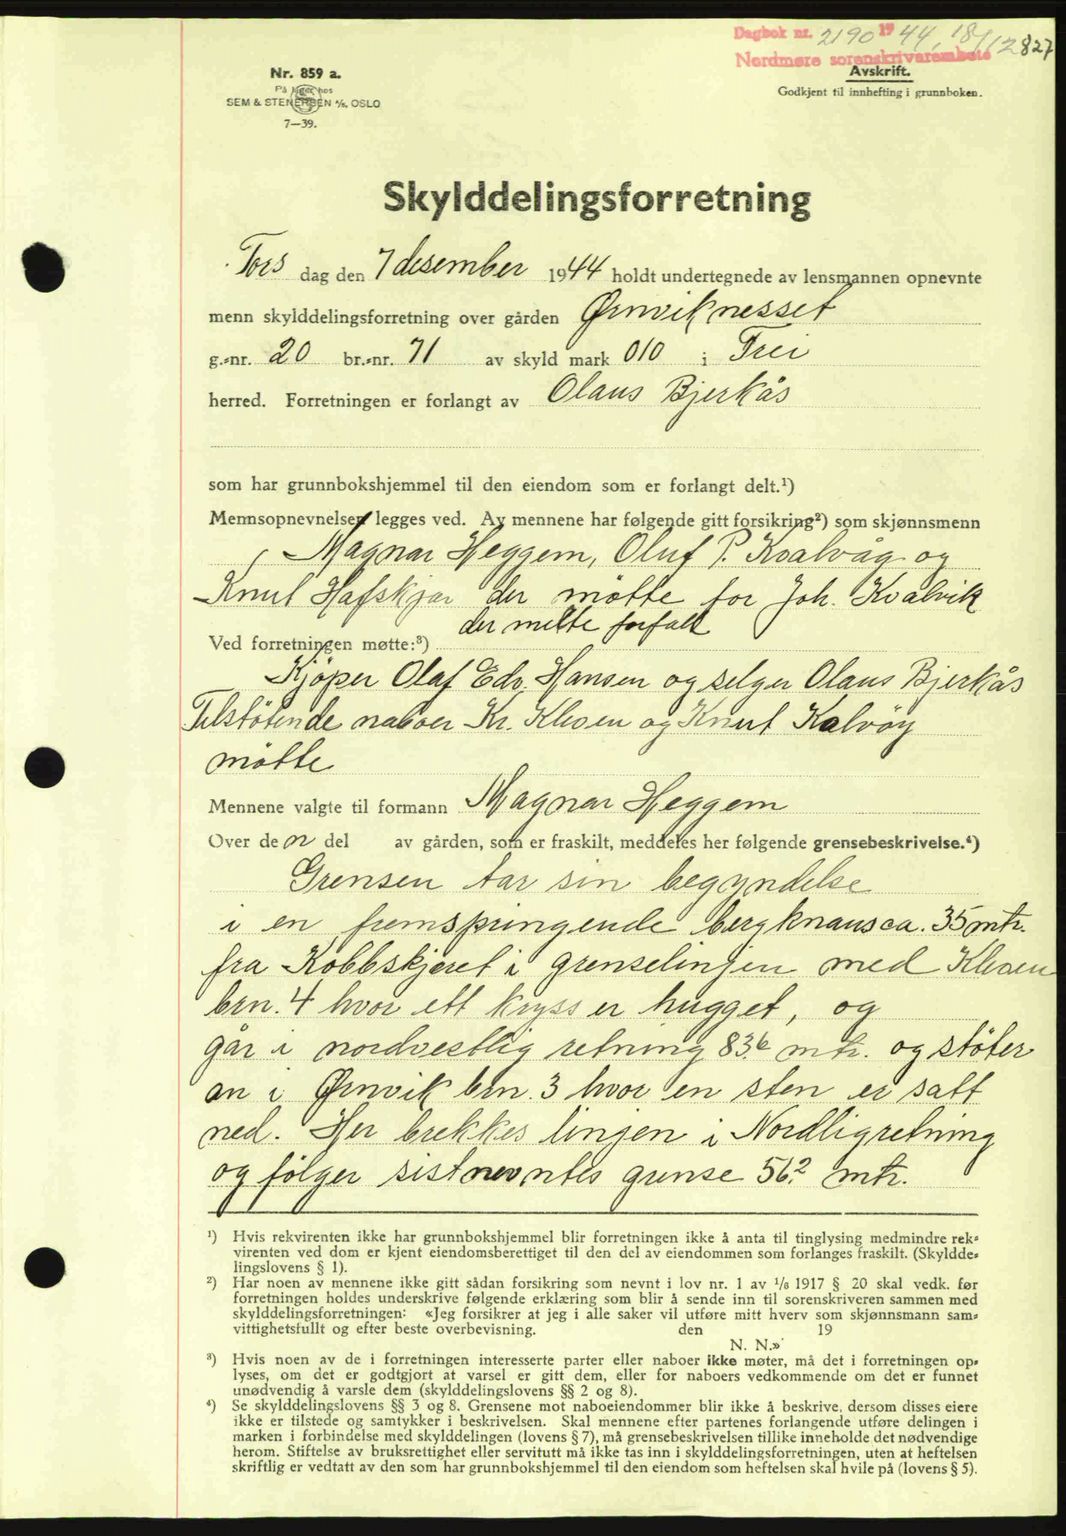 Dagbok nr. 2190 1944, 18/12 827
Nordmøre sorenskrivarembete
Nr. 859 a.
På lager hos
SEM & STENERSEN A/S, OSLO
7—39.
Avskrift.
Godkjent til innhefting i grunnboken.
Skylddelingsforretning
Tors dag den 7 desember 1944 holdt undertegnede av lensmannen opnevnte
menn skylddelingsforretning over gården Ørnviknesset
g.-nr. 20 br.-nr. 71 av skyld mark 010 i Frei
herred. Forretningen er forlangt av Olaus Bjerkås
som har grunnbokshjemmel til den eiendom som er forlangt delt.¹)
Mennsopnevnelsen legges ved. Av mennene har følgende gitt forsikring²) som skjønnsmenn
Magnar Heggem, Oluf P. Kvalvåg og
Knut Hafskjær der møtte for Joh. Kvalvik
der melte forfall
Ved forretningen møtte:³)
Kjöper Olaf Edv. Hansen og selger Olaus Bjerkås
Tilstötende naboer Kr. Kleven og Knut Kalvöy
mötte
Mennene valgte til formann Magnar Heggem
Over den del av gården, som er fraskilt, meddeles her følgende grensebeskrivelse.⁴)
Grensen tar sin begyndelse
i en fremspringende bergknaus ca. 35 mtr.
fra Kobbskjæret i grenselinjen med Kleven
brn. 4 hvor ett kryss er hugget, og
går i nordvestlig retning 83,6 mtr. og stöter
an i Ørnvik brn. 3 hvor en sten er satt
ned. Her brekkes linjen i Nordligretning
og fölger sistnevntes grense 56,2 mtr.
¹) Hvis rekvirenten ikke har grunnbokshjemmel blir forretningen ikke å anta til tinglysing medmindre rek-
virenten ved dom er kjent eiendomsberettiget til den del av eiendommen som forlanges fraskilt. (Skyldde-
lingslovens § 1).
²) Har noen av mennene ikke gitt sådan forsikring som nevnt i lov nr. 1 av 1/8 1917 § 20 skal vedk. før
forretningen holdes underskrive følgende erklæring som blir å sende inn til sorenskriveren sammen med
skylddelingsforretningen: «Jeg forsikrer at jeg i alle saker vil utføre mitt hverv som skjønnsmann sam-
vittighetsfullt og efter beste overbevisning. den 19
N. N.»
³) Hvis noen av de i forretningen interesserte parter eller naboer ikke møter, må det i forretningen op-
lyses, om det er godtgjort at varsel er gitt dem, eller for naboers vedkommende om det er funnet
unødvendig å varsle dem (skylddelingslovens §§ 2 og 8).
⁴) Se skylddelingslovens §§ 3 og 8. Grensene mot naboeiendommer blir ikke å beskrive, dersom disses eiere
ikke er tilstede og samtykker i beskrivelsen. Skal mennene efter partenes forlangende utføre delingen i
marken i forbindelse med skylddelingen (lovens § 7), må grensebeskrivelsen tillike inneholde det nødvendige
herom. Stiftelse av bruksrettighet eller servitutt må ikke tas inn i skylddelingsforretningen, uten at heftelsen
skriftlig er vedtatt av den som har grunnbokshjemmel til den eiendom som heftelsen skal hvile på (lovens § 5).